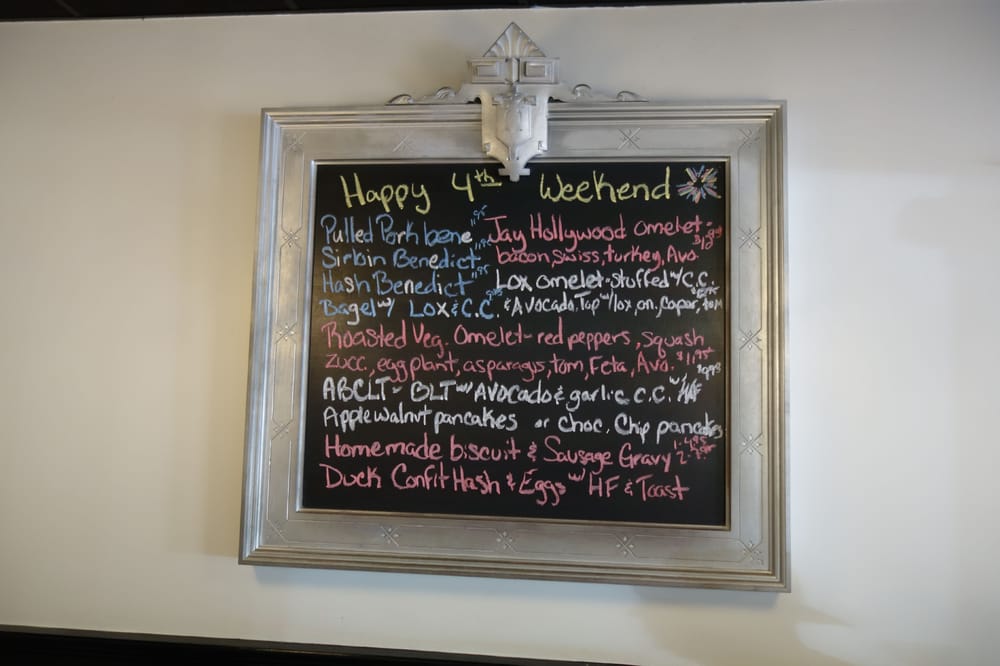 Happy 4th Weekend
Pulled Pork bene 11.95
Sirloin Benedict 11.95
Hash Benedict 11.95
Bagel w/ Lox & C.C.
Jay Hollywood omelet-
bacon, swiss, turkey, Avo.
Lox omelet-stuffed w/ C.C.
& Avocado. Top w/ lox, on, caper, tom
Roasted Veg. Omelet- red peppers, squash
zucc., eggplant, asparagus, tom, Feta, Avo. $11.95
ABCLT - BLT w/ Avocado & garlic C.C. w/ HF
Apple walnut pancakes or Choc. Chip pancakes
Homemade biscuit & Sausage Gravy
Duck Confit Hash & Eggs w/ HF & Toast